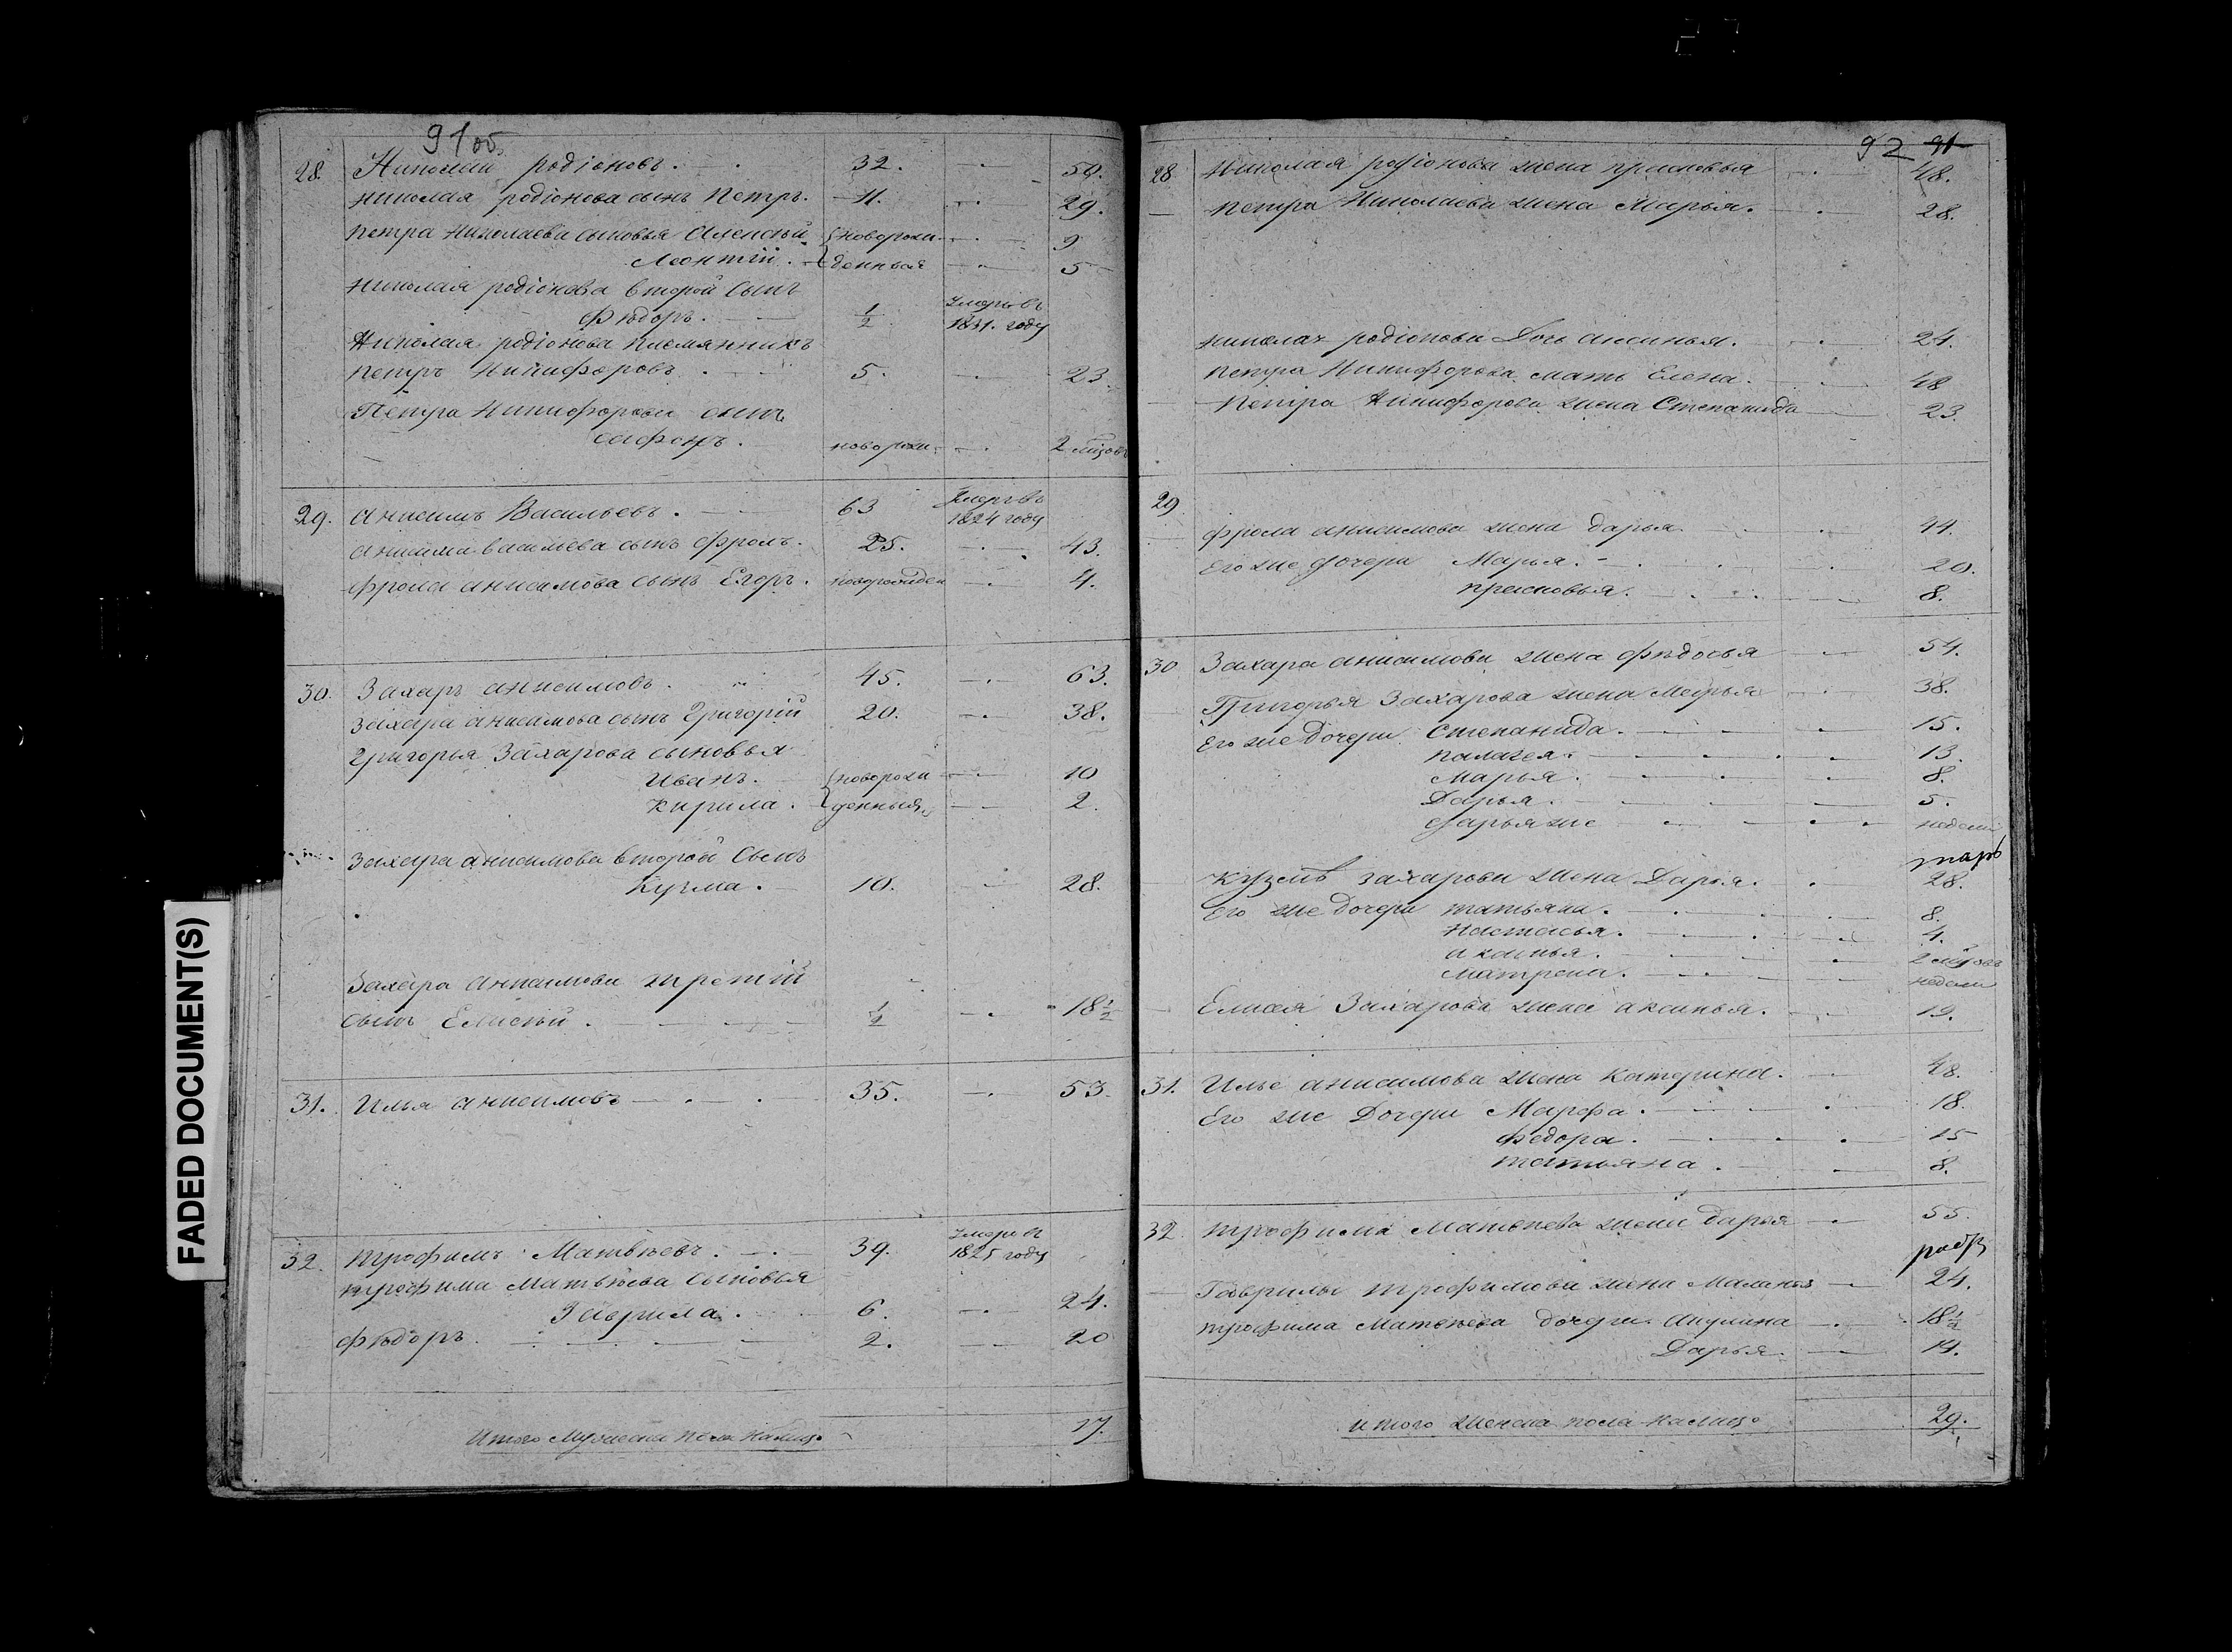 91 об.
28. Николай родіоновъ. 32. 50.
николая родіонова сынъ Петръ. 11. 29.
петра николаева сыновья Алексѣй новорож- 9
Леонтій. денныя 5
николая родіонова второй сынъ
Фѣдоръ. 1/2 умеръ въ 1831. году
Николая родіонова племянникъ
петръ Никифоровъ. 5. 23.
Петра Никифорова сынъ
сафонъ. новорож. 2 мѣсов
29. Анисимъ Васильевъ. 63 умеръ въ 1824 году
Анисима васильева сынъ Фролъ. 25. 43.
фрола анисимова сынъ Егоръ. новорожден 4.
30. Захаръ анисимовъ. 45. 63.
Захара анисимова сынъ Григорій 20. 38.
Григорья Захарова сыновья
Иванъ. новорож 10
Кирила. денныя 2.
Захара анисимова второй сынъ
Кузма. 10. 28.
Захара анисимова третій
сынъ Елисѣй. 1/2 18 1/2
31. Илья анисимовъ 35. 53.
32. трофимъ Матвѣевъ. 39. умеръ въ 1825 году
трофима Матвѣева сыновья
Гаврила. 6. 24.
Фѣдоръ. 2. 20
Итого Мужеска пола налицо 17.
92 91
28 Николая родіонова жена прасковья 48.
Петра Николаева жена Марья. 28.
николая родіонова дочь аксинья. 24.
петра Никифорова мать Елена. 48
Петра Никифорова жена Степанида 23.
29
фрола анисимова жена дарья. 44.
Его же дочери Марья. 20.
прасковья. 8.
30 Захара анисимова жена Фѣдосья 54.
Григорья Захарова жена Марья 38.
Его же дочери Степанида. 15.
палагея. 13.
Марья. 8.
Дарья. 5.
дарья же недели
Кузмы захарова жена Дарья. 28.
Его же дочери татьяна. 8.
настасья. 4.
аксинья. 2
Матрена. недели
Елисея Захарова жена аксинья. 19.
31. Илье анисимова жена Катерина. 48.
Его же дочери Марфа. 18.
Федора. 15
татьяна. 8.
32 трофима Матвѣева жена дарья 55.
Гаврилы трофимова жена Маланья 24.
трофима Матвѣева дочери Акулина 18 1/2
Дарья. 14.
итого женска пола налицо 29.
FADED DOCUMENT(S)